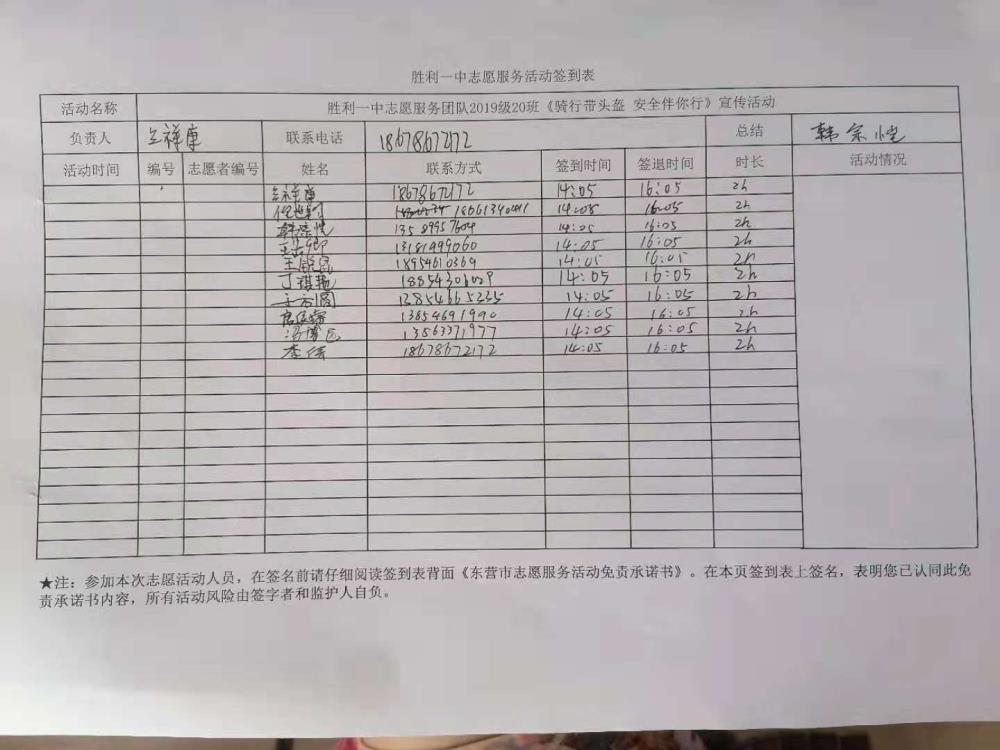 胜利一中志愿服务活动签到表
活动名称 胜利一中志愿服务团队2019级20班《骑行带头盔 安全伴你行》宣传活动
负责人 祥康 联系电话 18678672172 总结 韩宗恺
活动时间 编号 志愿者编号 姓名 联系方式 签到时间 签退时间 时长 活动情况
祥康 18678672172 14:05 16:05 2h
14:05 16:05 2h
韩宗恺 14:05 16:05 2h
13181999060 14:05 16:05 2h
王 18954610369 14:05 16:05 2h
丁祺艳 14:05 16:05 2h
14:05 16:05 2h
13854691990 14:05 16:05 2h
13863371977 14:05 16:05 2h
李 18678672172 14:05 16:05 2h
★注：参加本次志愿活动人员，在签名前请仔细阅读签到表背面《东营市志愿服务活动免责承诺书》。在本页签到表上签名，表明您已认同此免
责承诺书内容，所有活动风险由签字者和监护人自负。